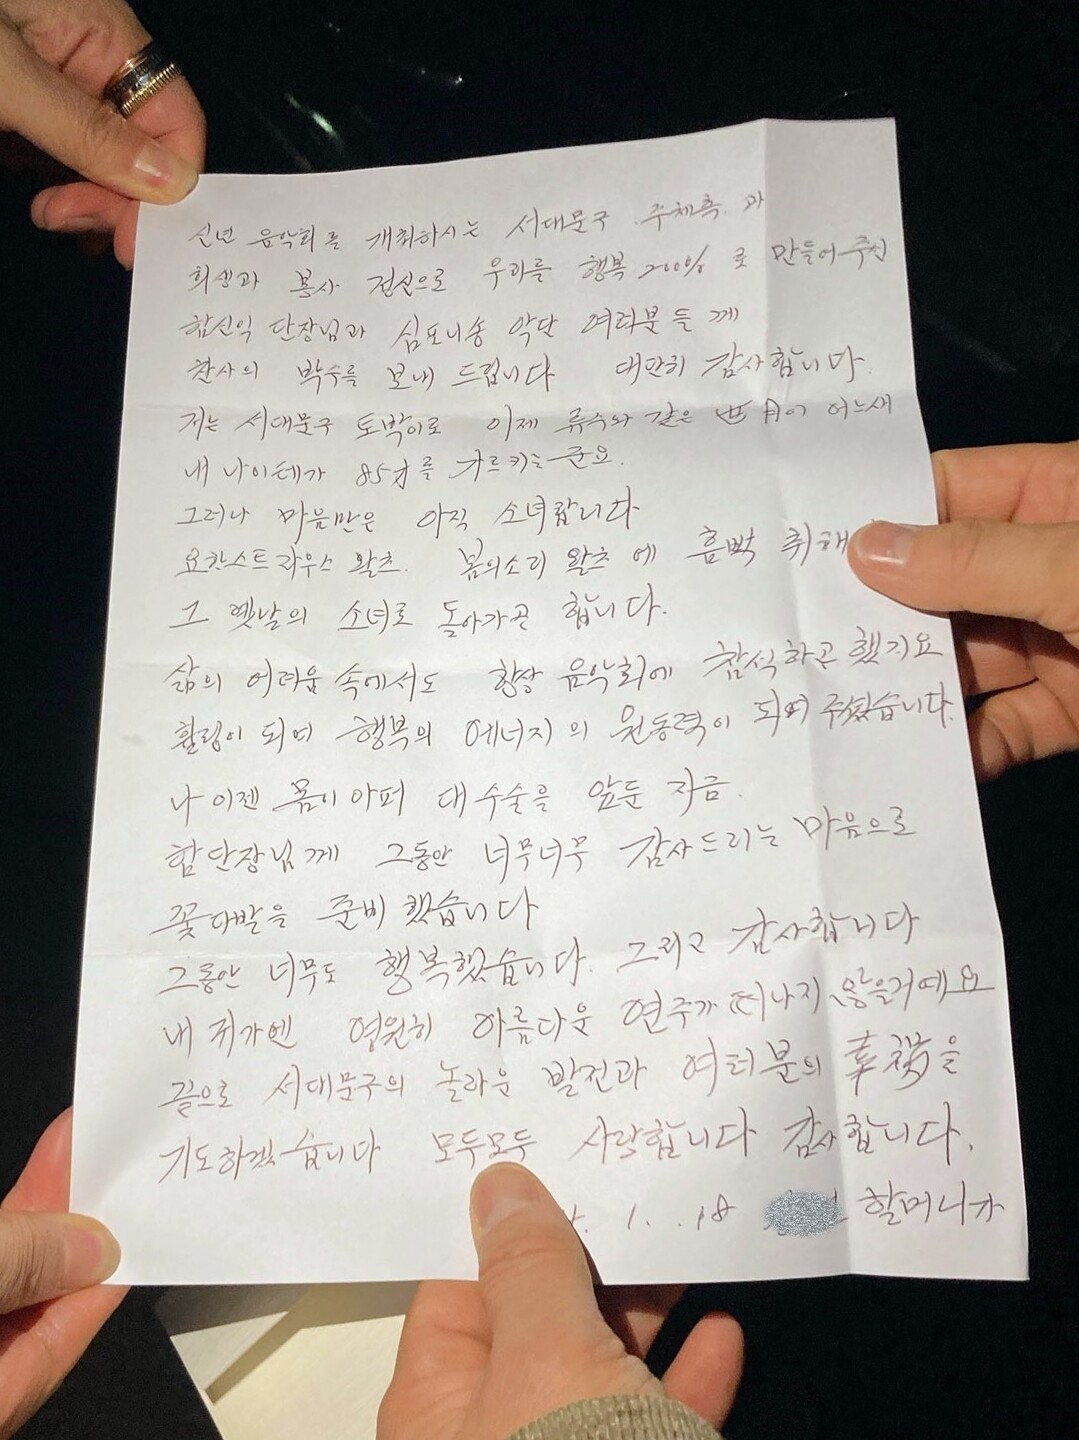 신년 음악회를 개최하시는 서대문구 주체측과
희생과 봉사 정신으로 우리를 행복 200% 로 만들어주신
함신익 단장님과 심포니송 악단 여러분들께
찬사의 박수를 보내 드립니다 대단히 감사합니다.
저는 서대문구 토박이로 이제 류수와 같은 世月이 어느새
내 나이테가 85才를 가르키는군요.
그러나 마음만은 아직 소녀랍니다
요한스트라우스 왈츠. 봄의소리 왈츠에 흠뻑 취해
그 옛날의 소녀로 돌아가곤 합니다.
삶의 어려움 속에서도 항상 음악회에 참석하곤 했지요
힐링이 되며 행복의 에너지의 원동력이 되어 주셨습니다.
나 이젠 몸이 아퍼 대수술을 앞둔 지금.
함단장님께 그동안 너무너무 감사드리는 마음으로
꽃다발을 준비했습니다
그동안 너무도 행복했습니다. 그리고 감사합니다
내 귀가엔 영원히 아름다운 연주가 떠나지 않을거예요
끝으로 서대문구의 놀라운 발전과 여러분의 을
기도하겠습니다 모두모두 사랑합니다 감사합니다.
1. .18 할머니가